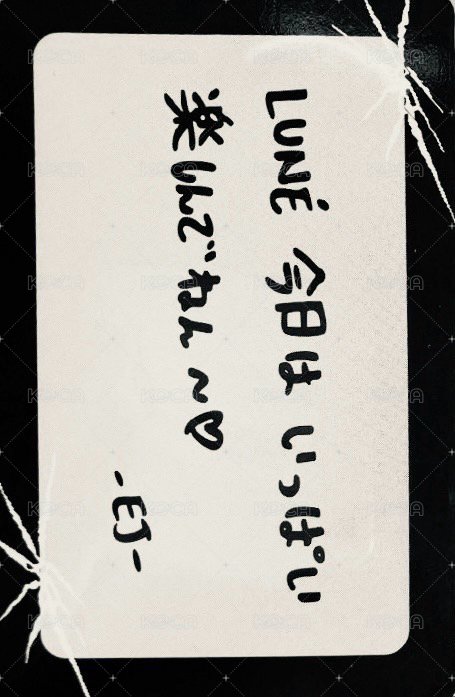 LUNÉ 今日は いっぱい
楽しんでねん～♡
-EJ-